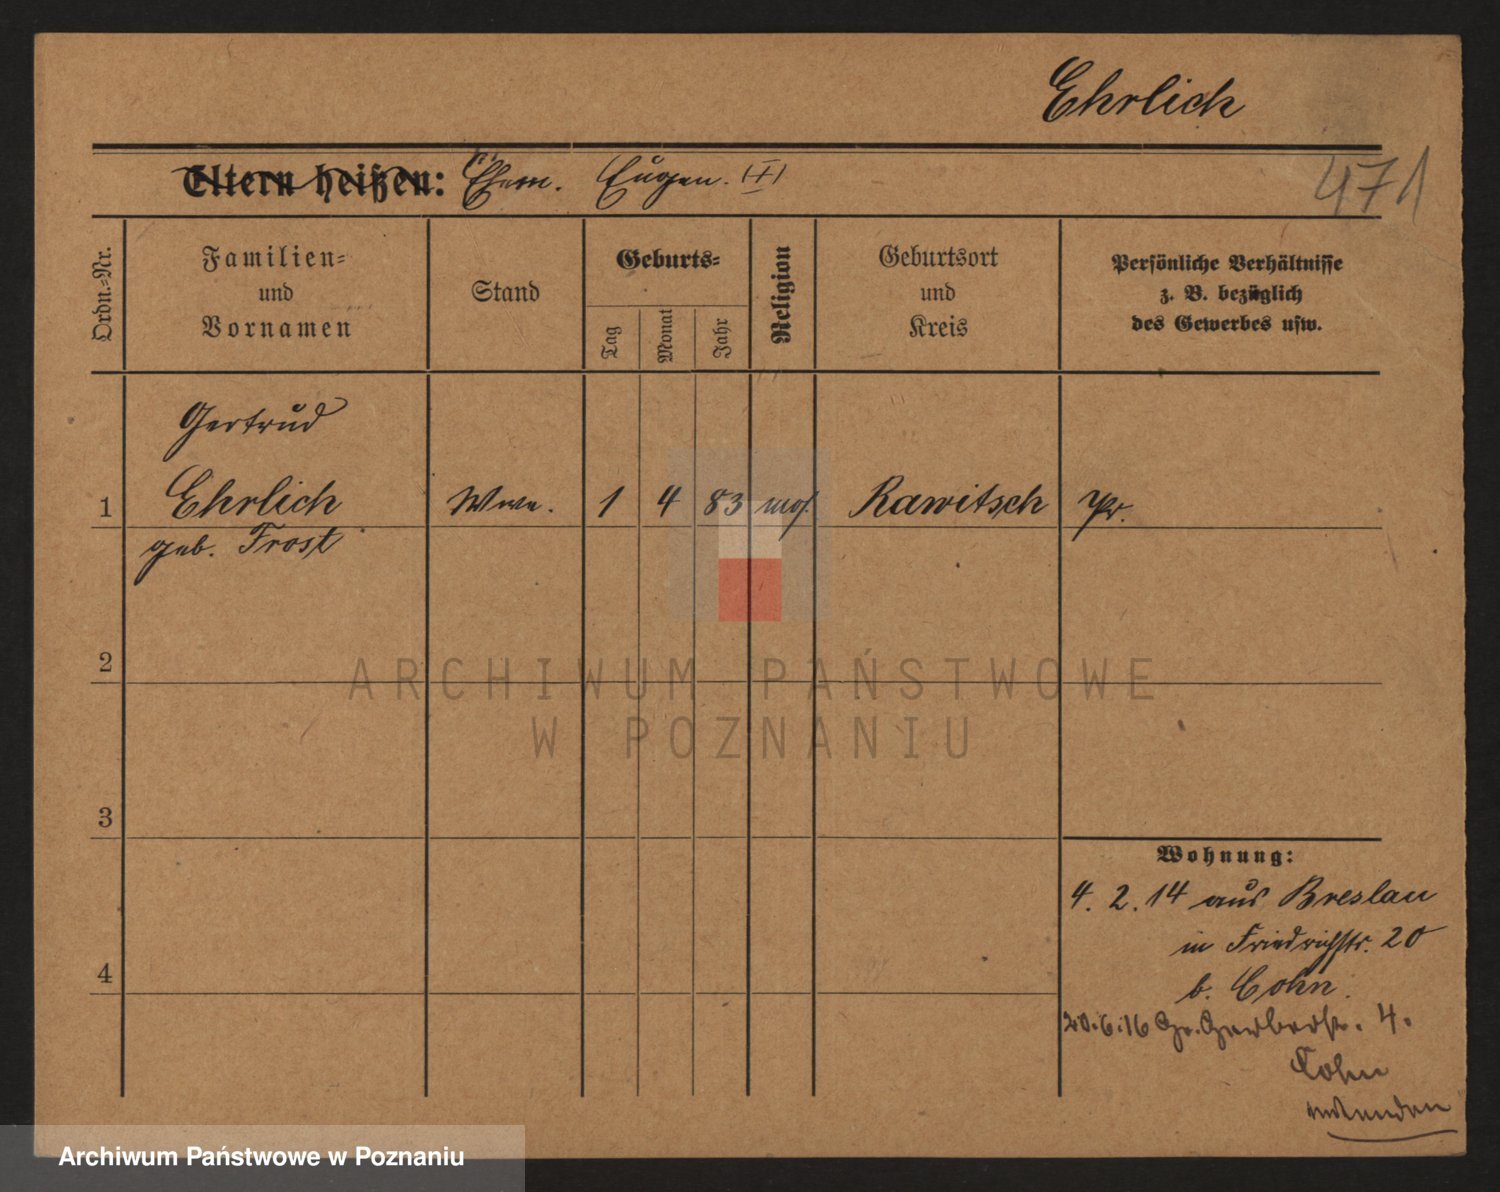 Ehrlich
471
Eltern heißen: Ehem. Eugen. (†)
Ordn.-Nr.
Familien-
und
Vornamen
Stand
Geburts-
Tag
Monat
Jahr
Religion
Geburtsort
und
Kreis
Persönliche Verhältnisse
z. B. bezüglich
des Gewerbes usw.
Gertrud
1 Ehrlich Wwe. 1 4 83 mos. Rawitsch Pr.
geb. Frost
2
3
4
Wohnung:
4. 2. 14 aus Breslau
in Friedrichstr. 20
b. Cohn.
20.6.16 Gr. Gerberstr. 4.
Cohn
ARCHIWUM PAŃSTWOWE
W POZNANIU
Archiwum Państwowe w Poznaniu